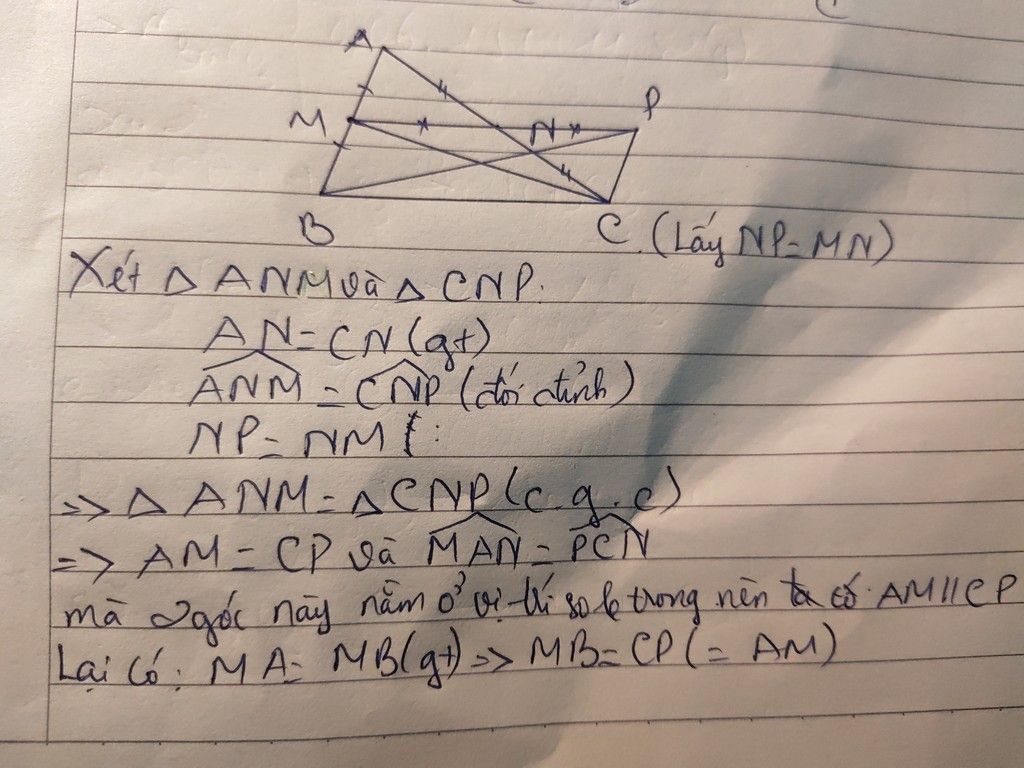 A
M
N
P
B
C (Lấy NP=MN)
Xét △ ANM và △ CNP.
AN=CN(gt)
\widehat{ANM} = \widehat{CNP} (đối đỉnh)
NP=NM
=> △ ANM=△CNP(c.g.c)
=> AM=CP và \widehat{MAN}=\widehat{PCN}
mà 2 góc này nằm ở vị trí so le trong nên ta có AM//CP
Lại có: MA=MB(gt)=> MB=CP(=AM)